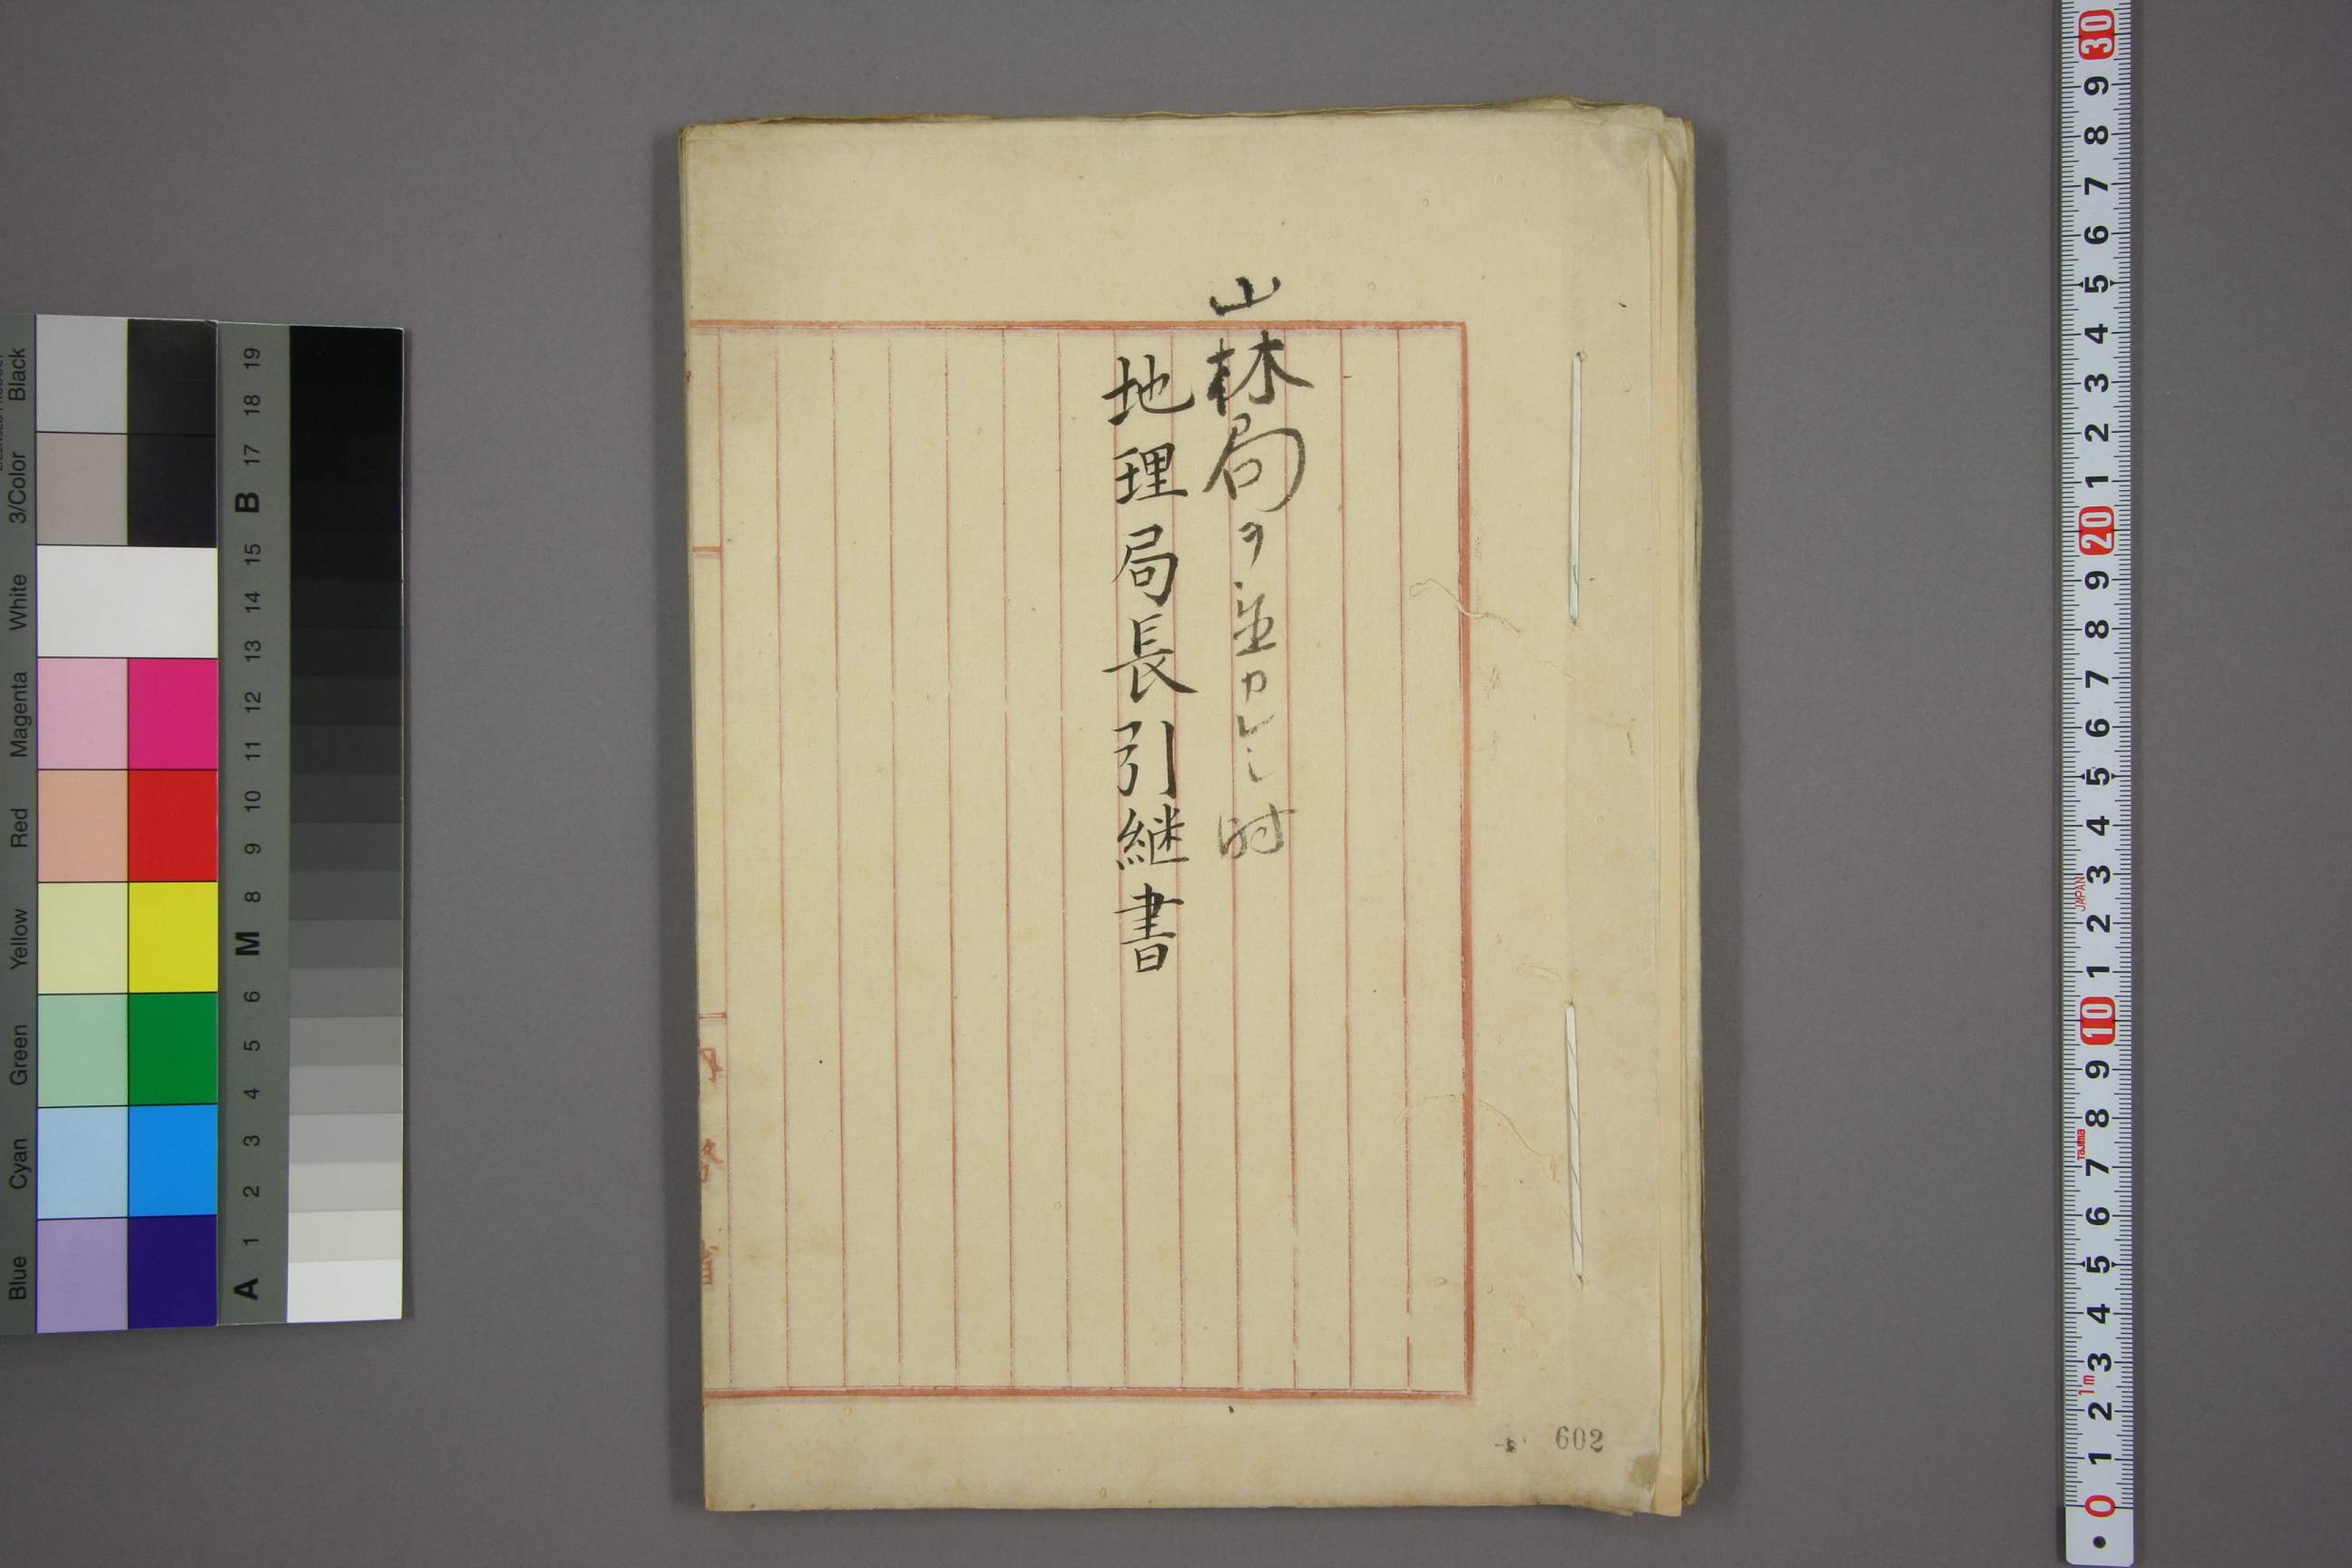 山林局ヲ置カレシ時
地理局長引継書
602
内務省
Blue Cyan Green Yellow Red Magenta White 3/Color Black
A 1 2 3 4 5 6 M 8 9 10 11 12 13 14 15 B 17 18 19
0 1 2 3 4 5 6 7 8 9 10 1 2 3 4 5 6 7 8 9 20 1 2 3 4 5 6 7 8 9 30
1m
Tajima
JAPAN